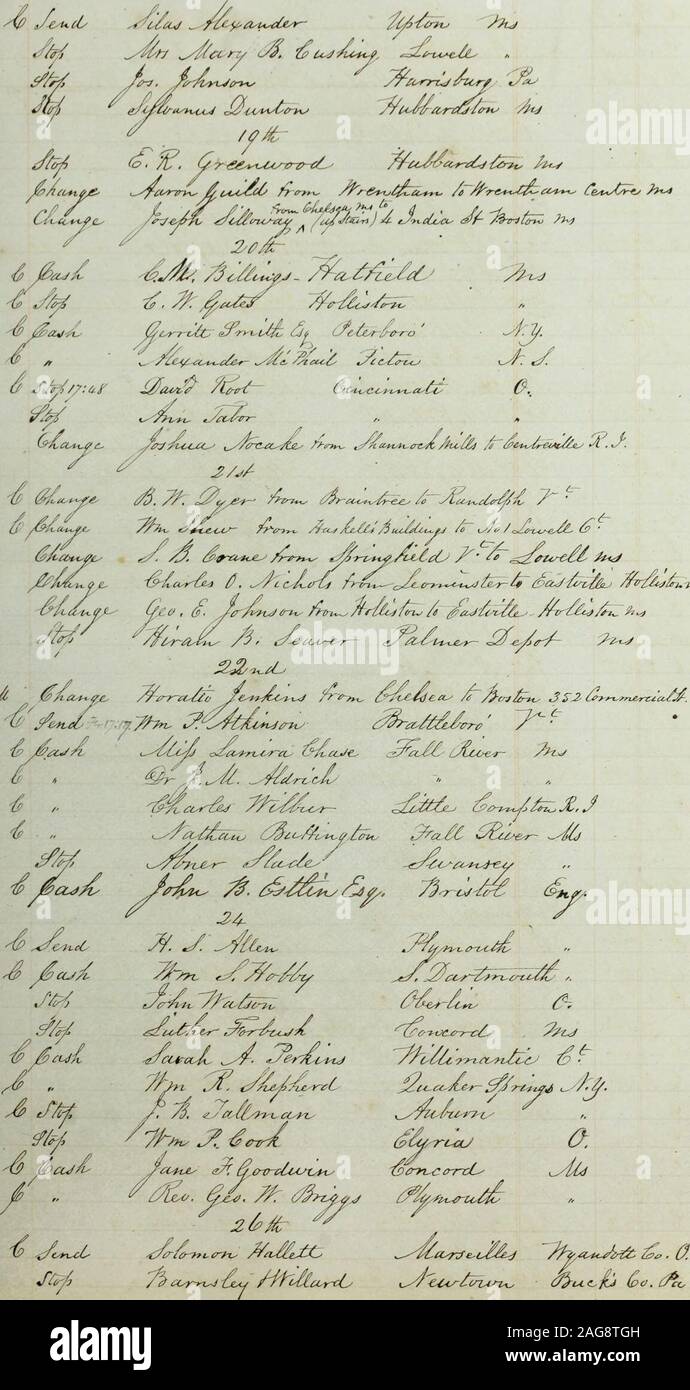 C Send Silas Alexander Upton Ms
Stop Mrs Mary B. Cushing Lowell "
Stop Jos. Johnson Harrisburg Pa
Stop Sylvanus Dunton Hubbardston Ms
19th
Stop E. R. Greenwood Hubbardston Ms
Change Aaron Guild from Wrentham to Wrentham Centre Ms
from Chelsea Ms to
Change Joseph Silloway ^ (up Stairs) 4 India St Boston Ms
20th
C Cash C. M. Billings - Hatfield Ms
C Stop C. W. Gates Holliston "
C Cash Gerritt Smith Esq Peterboro' N.Y.
C " Alexander McPhail Pictou N. S.
C Stop 17:48 David Root Cincinnati O.
Stop Ann Tabor " "
Change Joshua Nocake from Shannock Mills to Centreville R.I.
21st
C Change B. W. Dyer from Braintree to Randolph Vt
C Change Wm Shew from Haskell's Buildings to No 1 Lowell Ct
Change S. B. Crane from Springfield Vt to Lowell Ms
Change Charles O. Nichols from Leominster to Eastville Holliston
Change Geo. E. Johnson from Holliston to Eastville - Holliston Ms
Stop Hiram B. Seaver Palmer Depot Ms
22nd
Change Horatio Jenkins from Chelsea to Boston 352 Commercial St.
C Send Wm P. Atkinson Brattleboro' Vt
C Cash Miss Lamira Chase Fall River Ms
C " Dr J. M. Aldrich " "
C " Charles Wilbur Little Compton R.I
C " Nathan Buffington Fall River Ms
Stop Abner Slade Swansey "
C Cash John B. Estlin Esq. Bristol Eng.
24
C Send H. S. Allen Plymouth "
C Cash Wm S. Hobby S. Dartmouth "
Stop John Watson Oberlin O.
Stop Luther Forbush Concord Ms
C Cash Sarah A. Perkins Willimantic Ct
C " Wm R. Shepherd Quaker Springs N.Y.
C Stop J. B. Tallman Auburn "
Stop Wm P. Cook Elyria O.
C Cash Jane F. Goodwin Concord Ms
C " Rev. Geo. W. Briggs Plymouth "
26th
C Send Solomon Hallett Marseilles Wyandott Co. O.
Stop Barnsley & Willard Newtown Buck's Co. Pa
alamy
Image ID: 2AG8TGH
www.alamy.com